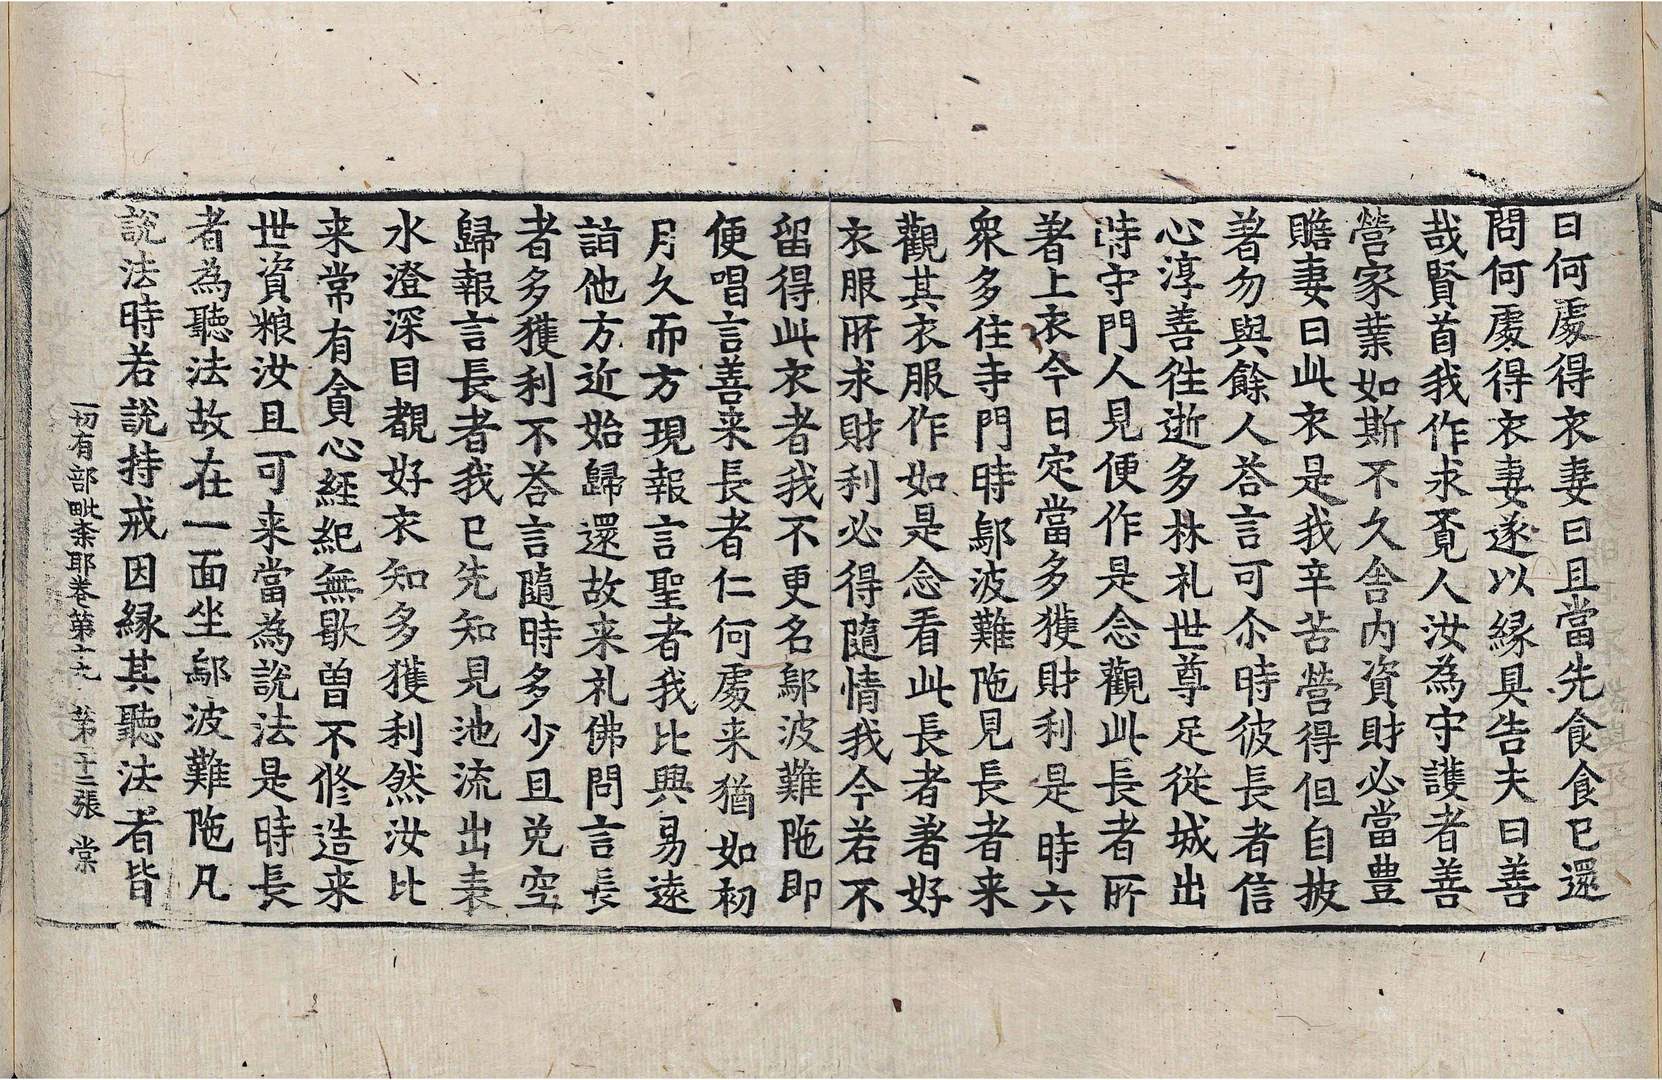 曰何處得衣妻曰且當先食食已還
問何處得衣妻遂以縁具告夫曰善
哉賢首我作求覔人汝為守護者善
營家業如斯不久舍内資財必當豊
贍妻曰此衣是我辛苦營得但自披
著勿與餘人荅言可尒時彼長者信
心淳善徃逝多林礼世尊足從城出
時守門人見便作是念觀此長者所
著上衣今日定當多獲財利是時六
衆多住寺門時鄔波難陁見長者来
觀其衣服作如是念看此長者著好
衣服所求財利必得隨情我今若不
留得此衣者我不更名鄔波難陁即
便唱言善来長者仁何處来猶如初
月久而方現報言聖者我比興易遠
詣他方近始歸還故来礼佛問言長
者多獲利不荅言隨時多少且免空
歸報言長者我已先知見池流出表
水澄深目覩好衣知多獲利然汝比
来常有貪心經紀無歇曽不修造来
世資粮汝且可来當為說法是時長
者為聽法故在一面坐鄔波難陁凡
說法時若說持戒因縁其聽法者皆
一切有部毗柰耶巻第十九 第二十二張 棠